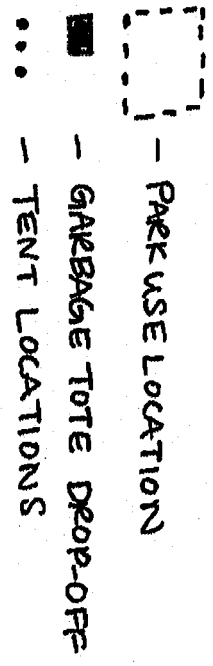 - PARK USE LOCATION
- GARBAGE TOTE DROP-OFF
- TENT LOCATIONS